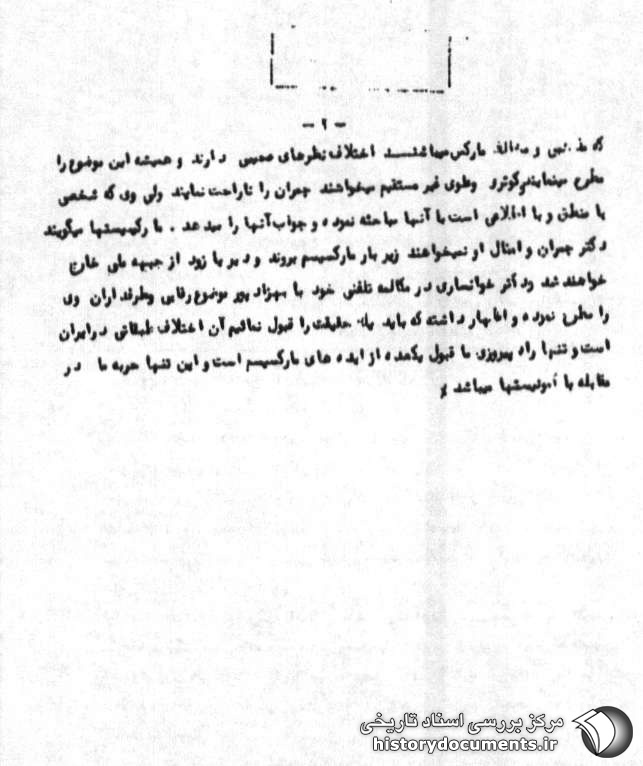 - ۲ -
که مذهبی و مخالف مارکس میباشند اختلاف نظرهای عمیقی دارند و همیشه این موضوع را
مطرح مینمایند وطوی غیر مستقیم میخواهند چمران را ناراحت نمایند ولی وی که شخصی
با منطق و با اطلاعی است با آنها مباحثه نموده و جواب آنها را میدهد . مارکسیستها میگویند
دکتر چمران و امثال او نمیخواهند زیر بار مارکسیسم بروند و دیر یا زود از جبهه ملی خارج
خواهند شد ودکتر خوانساری در مکالمه تلفنی خود با بهزاد پور موضوع رفایی وطرفداران وی
را مطرح نموده و اظهار داشته که باید یک حقیقت را قبول نمائیم آن اختلاف طبقاتی درایران
است و تنها راه پیروزی ما قبول یکعده از ایده های مارکسیسم است و این تنها حربه ما در
مقابله با کمونیستها میباشد
مرکز بررسی اسناد تاریخی
historydocuments.ir